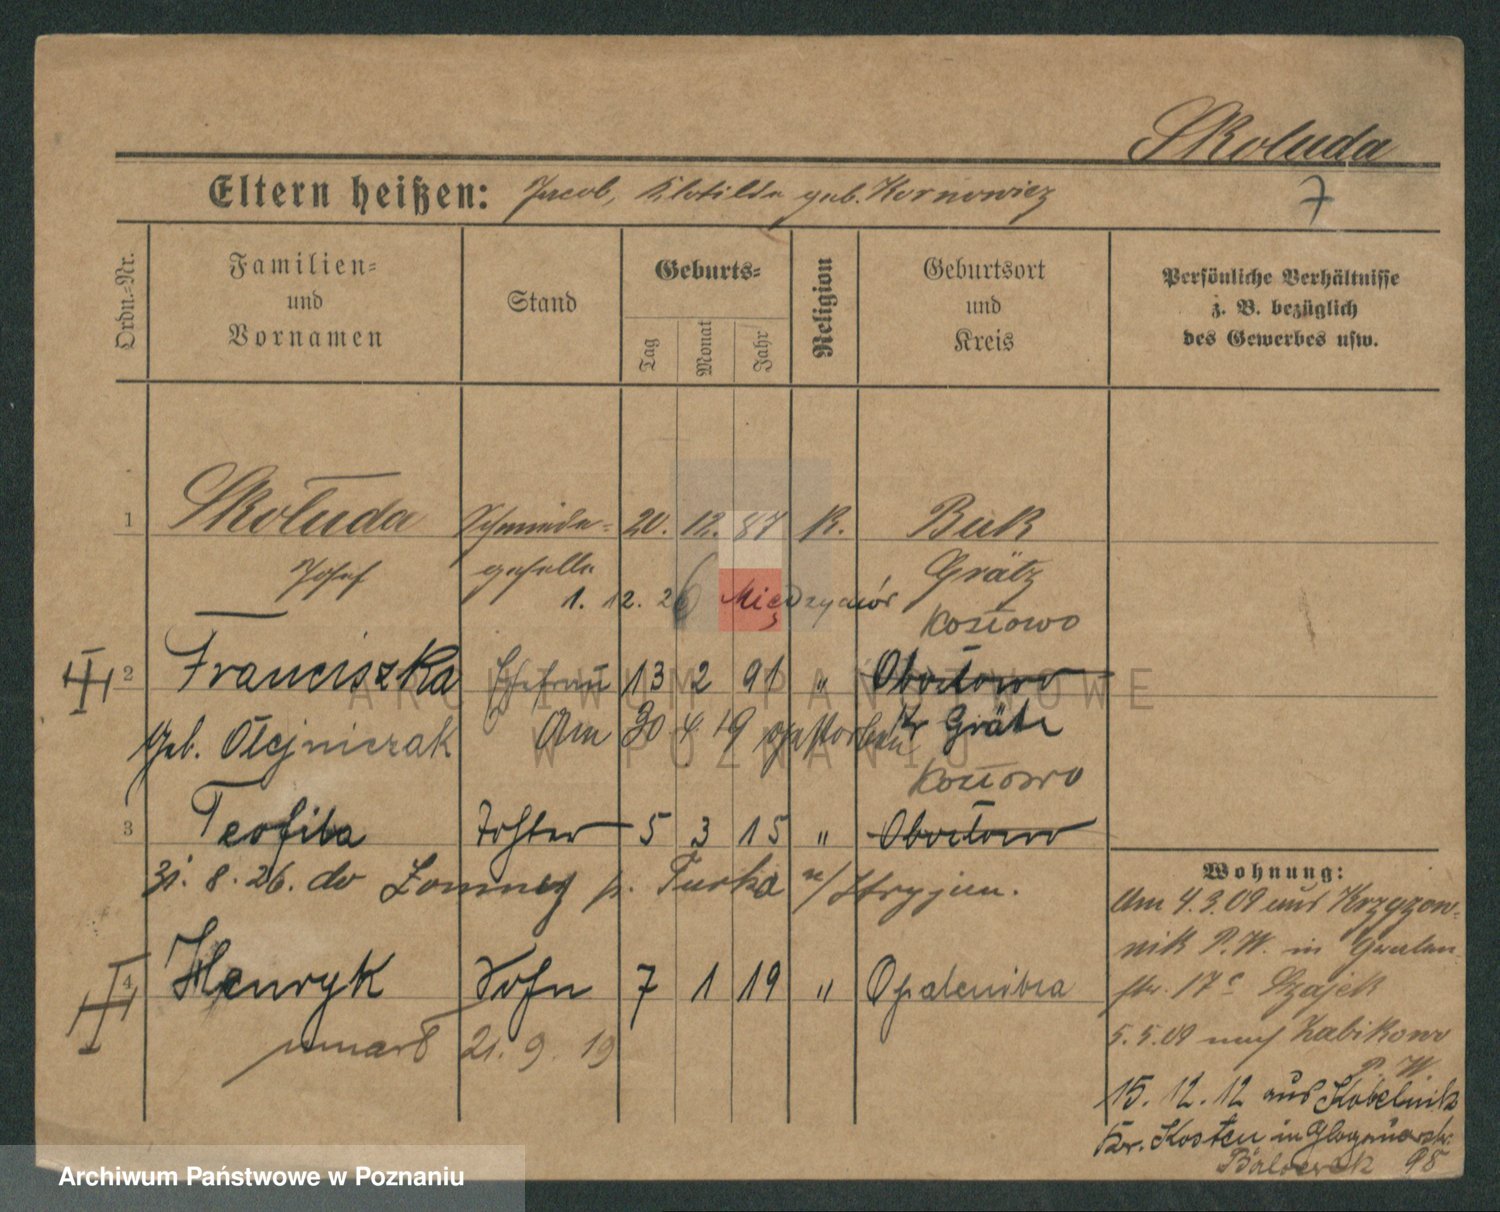 Skoluda
Eltern heißen: Jacob, Klotilde geb. Kornowicz
7
Ordn.-Nr.
Familien-
und
Vornamen
Stand
Geburts-
Tag
Monat
Jahr
Religion
Geburtsort
und
Kreis
Persönliche Verhältnisse
z. B. bezüglich
des Gewerbes usw.
1 Skołuda Schmiede- 20. 12. 87 K. Buk
Josef geselle Grätz
1. 12. 26 Międzychód
Kozłowo
2 Franciszka Ehefrau 13 2 91 " Obortowo
geb. Olejniczak Am 30 4 19 gestorben Kr Grätz
Kozłowo
3 Teofila Tochter 5 3 15 " Obortowo
31. 8. 26. do Łomney p. Turka n/Stryjem.
4 Henryk Sohn 7 1 19 " Opalenitza
umarł 21. 9. 19
Wohnung:
Am 4.3.09 aus Krzyzow-
nik P.W. in
str. 17c Szajek
5.5.09 nach Zabikowo
P. W.
15. 12. 12 aus Kobelnik
Kr. Kosten in Glogauerstr.
98
ARCHIWUM PAŃSTWOWE
W POZNANIU
Archiwum Państwowe w Poznaniu